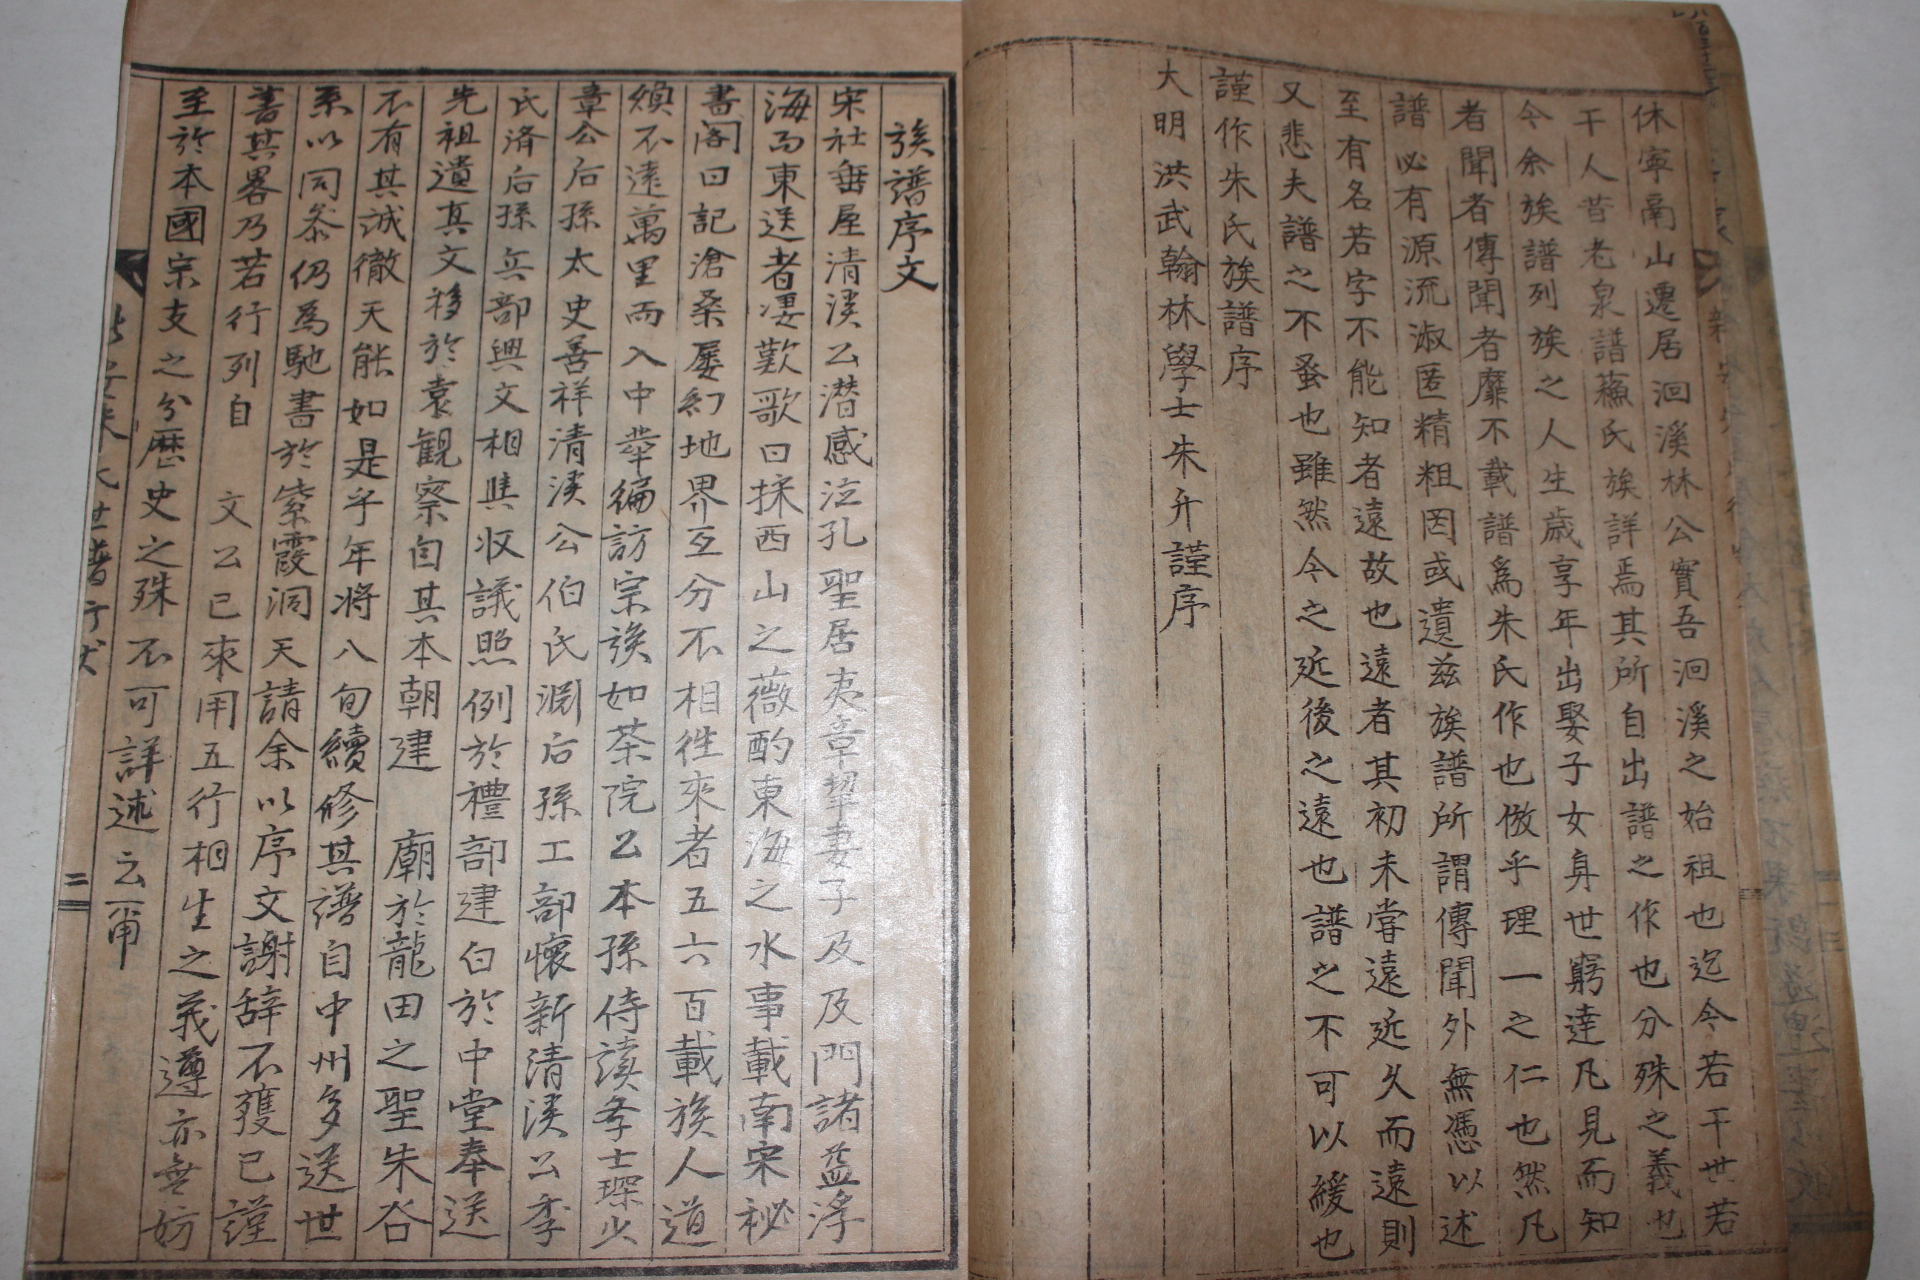 休寧南山遷居洄溪林公實吾洄溪之始祖也迄今若干世若
干人昔老泉譜蘓氏族詳焉其所自出譜之作也分殊之義也
今余族譜列族之人生歳享年出娶子女身世窮達凡見而知
者聞者傳聞者靡不載譜爲朱氏作也倣乎理一之仁也然凡
譜必有源流淑匿精粗罔或遺兹族譜所謂傳聞外無憑以述
至有名若字不能知者遠故也遠者其初未嘗遠延久而遠則
又悲夫譜之不蚤也雖然今之延後之遠也譜之不可以緩也
謹作朱氏族譜序
大明洪武翰林學士朱升謹序
族譜序文
宋社垂屋清溪公潜感泣孔聖居夷章挈妻子及及門諸益浮
海而東送者凄歎歌曰採西山之薇酌東海之水事載南宋秘
書閣日記滄桑屡幻地界互分不相徃來者五六百載族人道
煥不遠萬里而入中華徧訪宗族如茶院公本孫侍讀孝士琛少
章公后孫太史善祥清溪公伯氏淵后孫工部懷新清溪公季
氏済后孫兵部興文相與収議照例於禮部建白於中堂奉送
先祖遺真文移於袁観察自其本朝建 廟於龍田之聖朱谷
不有其誠徹天能如是乎年將八旬續修其譜自中州多送世
系以同叅仍爲馳書於紫霞洞天請余以序文謝辞不獲已謹
書其畧乃若行列自 文公已來用五行相生之義遵亦無妨
至於本國宗支之分歴史之殊不可詳述云甭
朱氏世譜行狀
二